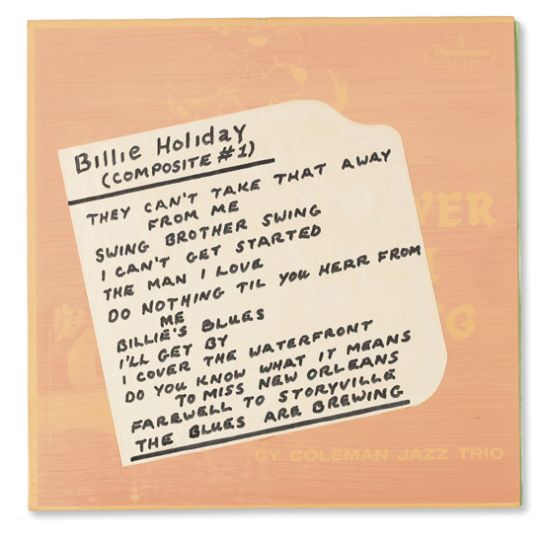 Westminster
HI-FI
Billie Holiday
(COMPOSITE #1)
THEY CAN'T TAKE THAT AWAY
FROM ME
SWING BROTHER SWING
I CAN'T GET STARTED
THE MAN I LOVE
DO NOTHING TIL YOU HERR FROM
ME
BILLIE'S BLUES
I'LL GET BY
I COVER THE WATERFRONT
DO YOU KNOW WHAT IT MEANS
TO MISS NEW ORLEANS
FAREWELL TO STORYVILLE
THE BLUES ARE BREWING
VER
G
CY COLEMAN JAZZ TRIO